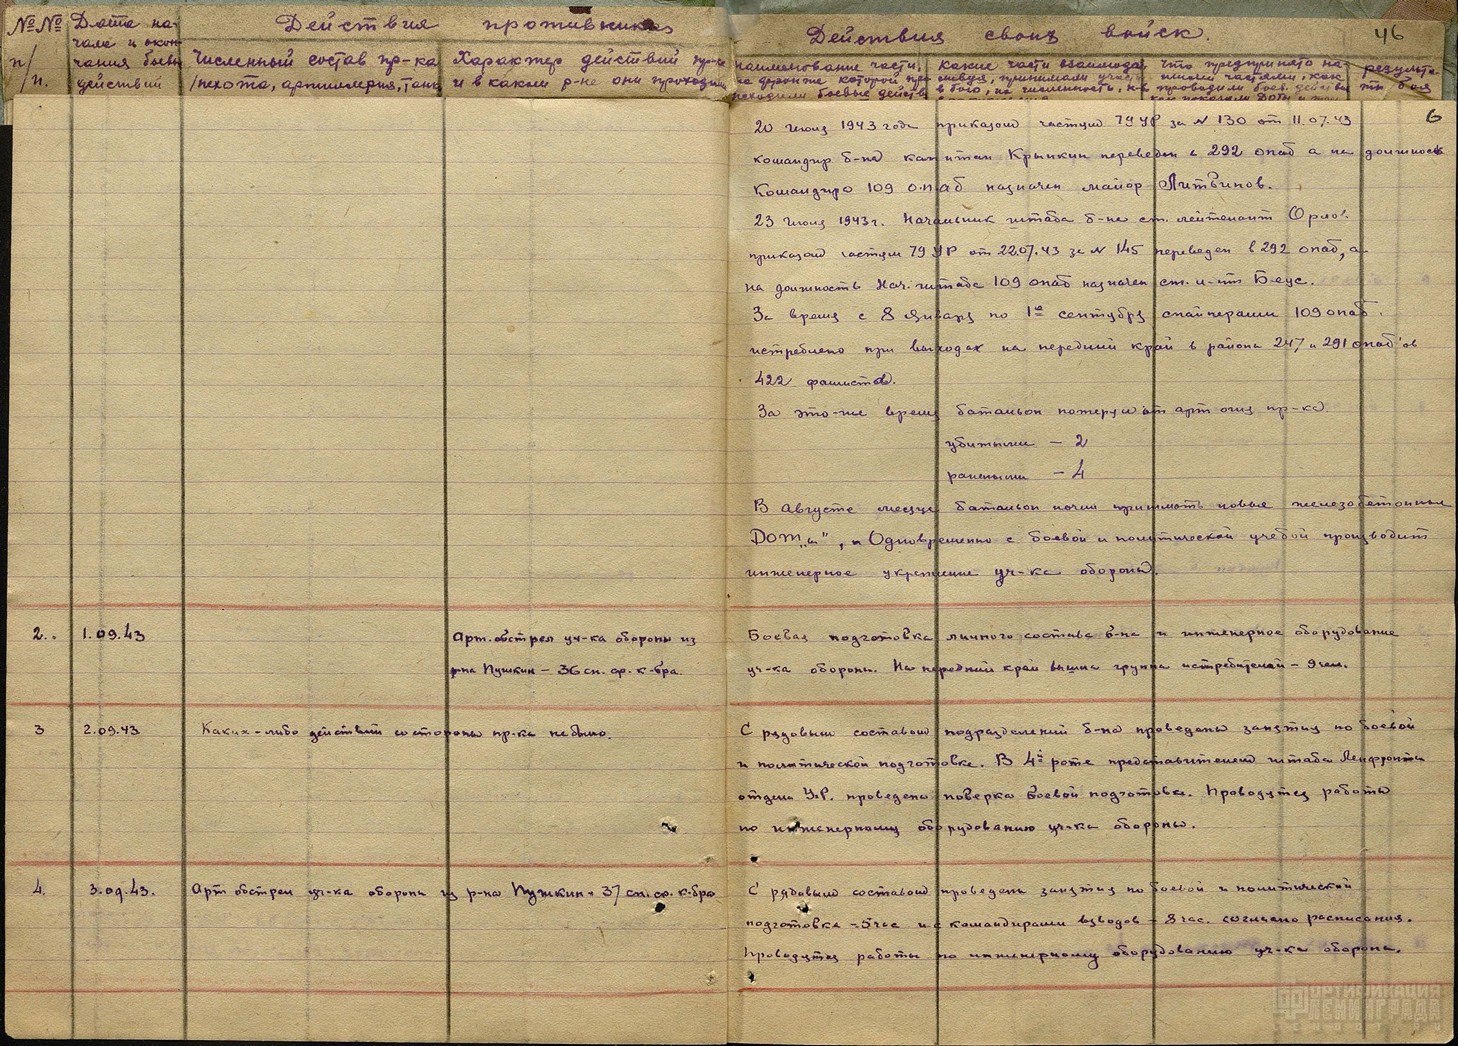 №№ п/п.
Дата начала и окончания боевых действий
Действия противника
Численный состав пр-ка /пехота, артиллерия, танк
Характер действий пр-ка и в каком р-не они проходили
Действия своих войск.
46
наименование части, на фронте которой проходили боевые действ
какие части взаимодействуя, принимали участ в бою, их численность
что предпринято нашими частями, как проводили боев. действ
результаты боя
6
20 июля 1943 года приказом частям 79 УР за N 130 от 11.07.43
командир б-на капитан Крынкин переведен в 292 опаб а на должность
Командира 109 о.п.а.б назначен майор Литвинов.
23 июля 1943 г. Начальник штаба б-на ст. лейтенант Орлов
приказом частям 79 УР от 22.07.43 за N 145 переведен в 292 опаб, а
на должность Нач. штаба 109 опаб назначен ст. л-нт Беус.
За время с 8 Января по 1е сентября снайперами 109 опаб
истреблено при выходах на передний край в района 247 и 291 опаб'ов
422 фашистов.
За это-же время батальон потерял от арт огня пр-ка
убитыми – 2
ранеными – 4
В Августе месяце батальон начал принимать новые железобетонные
ДОТ„ы", и Одновременно с боевой и политической учебой производит
инженерное укрепление уч-ка обороны.
2. 1.09.43
Арт. обстрел уч-ка обороны из
р-на Пушкин – 36 сн. ср. к-бра.
Боевая подготовка личного состава б-на и инженерное оборудование
уч-ка обороны. На передний край вышла группа истребителей – 9 чел.
3 2.09.43 Каких-либо действий со стороны пр-ка не было.
С рядовым составом подразделений б-на проведены занятия по боевой
и политической подготовке. В 4й роте представителем штаба Ленфронта
отдела У.Р. проведена поверка боевой подготовки. Проводятся работы
по инженерному оборудованию уч-ка обороны.
4. 3.09.43. Арт обстрел уч-ка обороны из р-на Пушкин – 37 сн. ср. к-бра
С рядовым составом проведены занятия по боевой и политической
подготовке – 5 час и с командирами взводов – 8 час. согласно расписания.
Проводятся работы по инженерному оборудованию уч-ка обороны.
ФОРТИФИКАЦИЯ
ЛЕНИНГРАДА